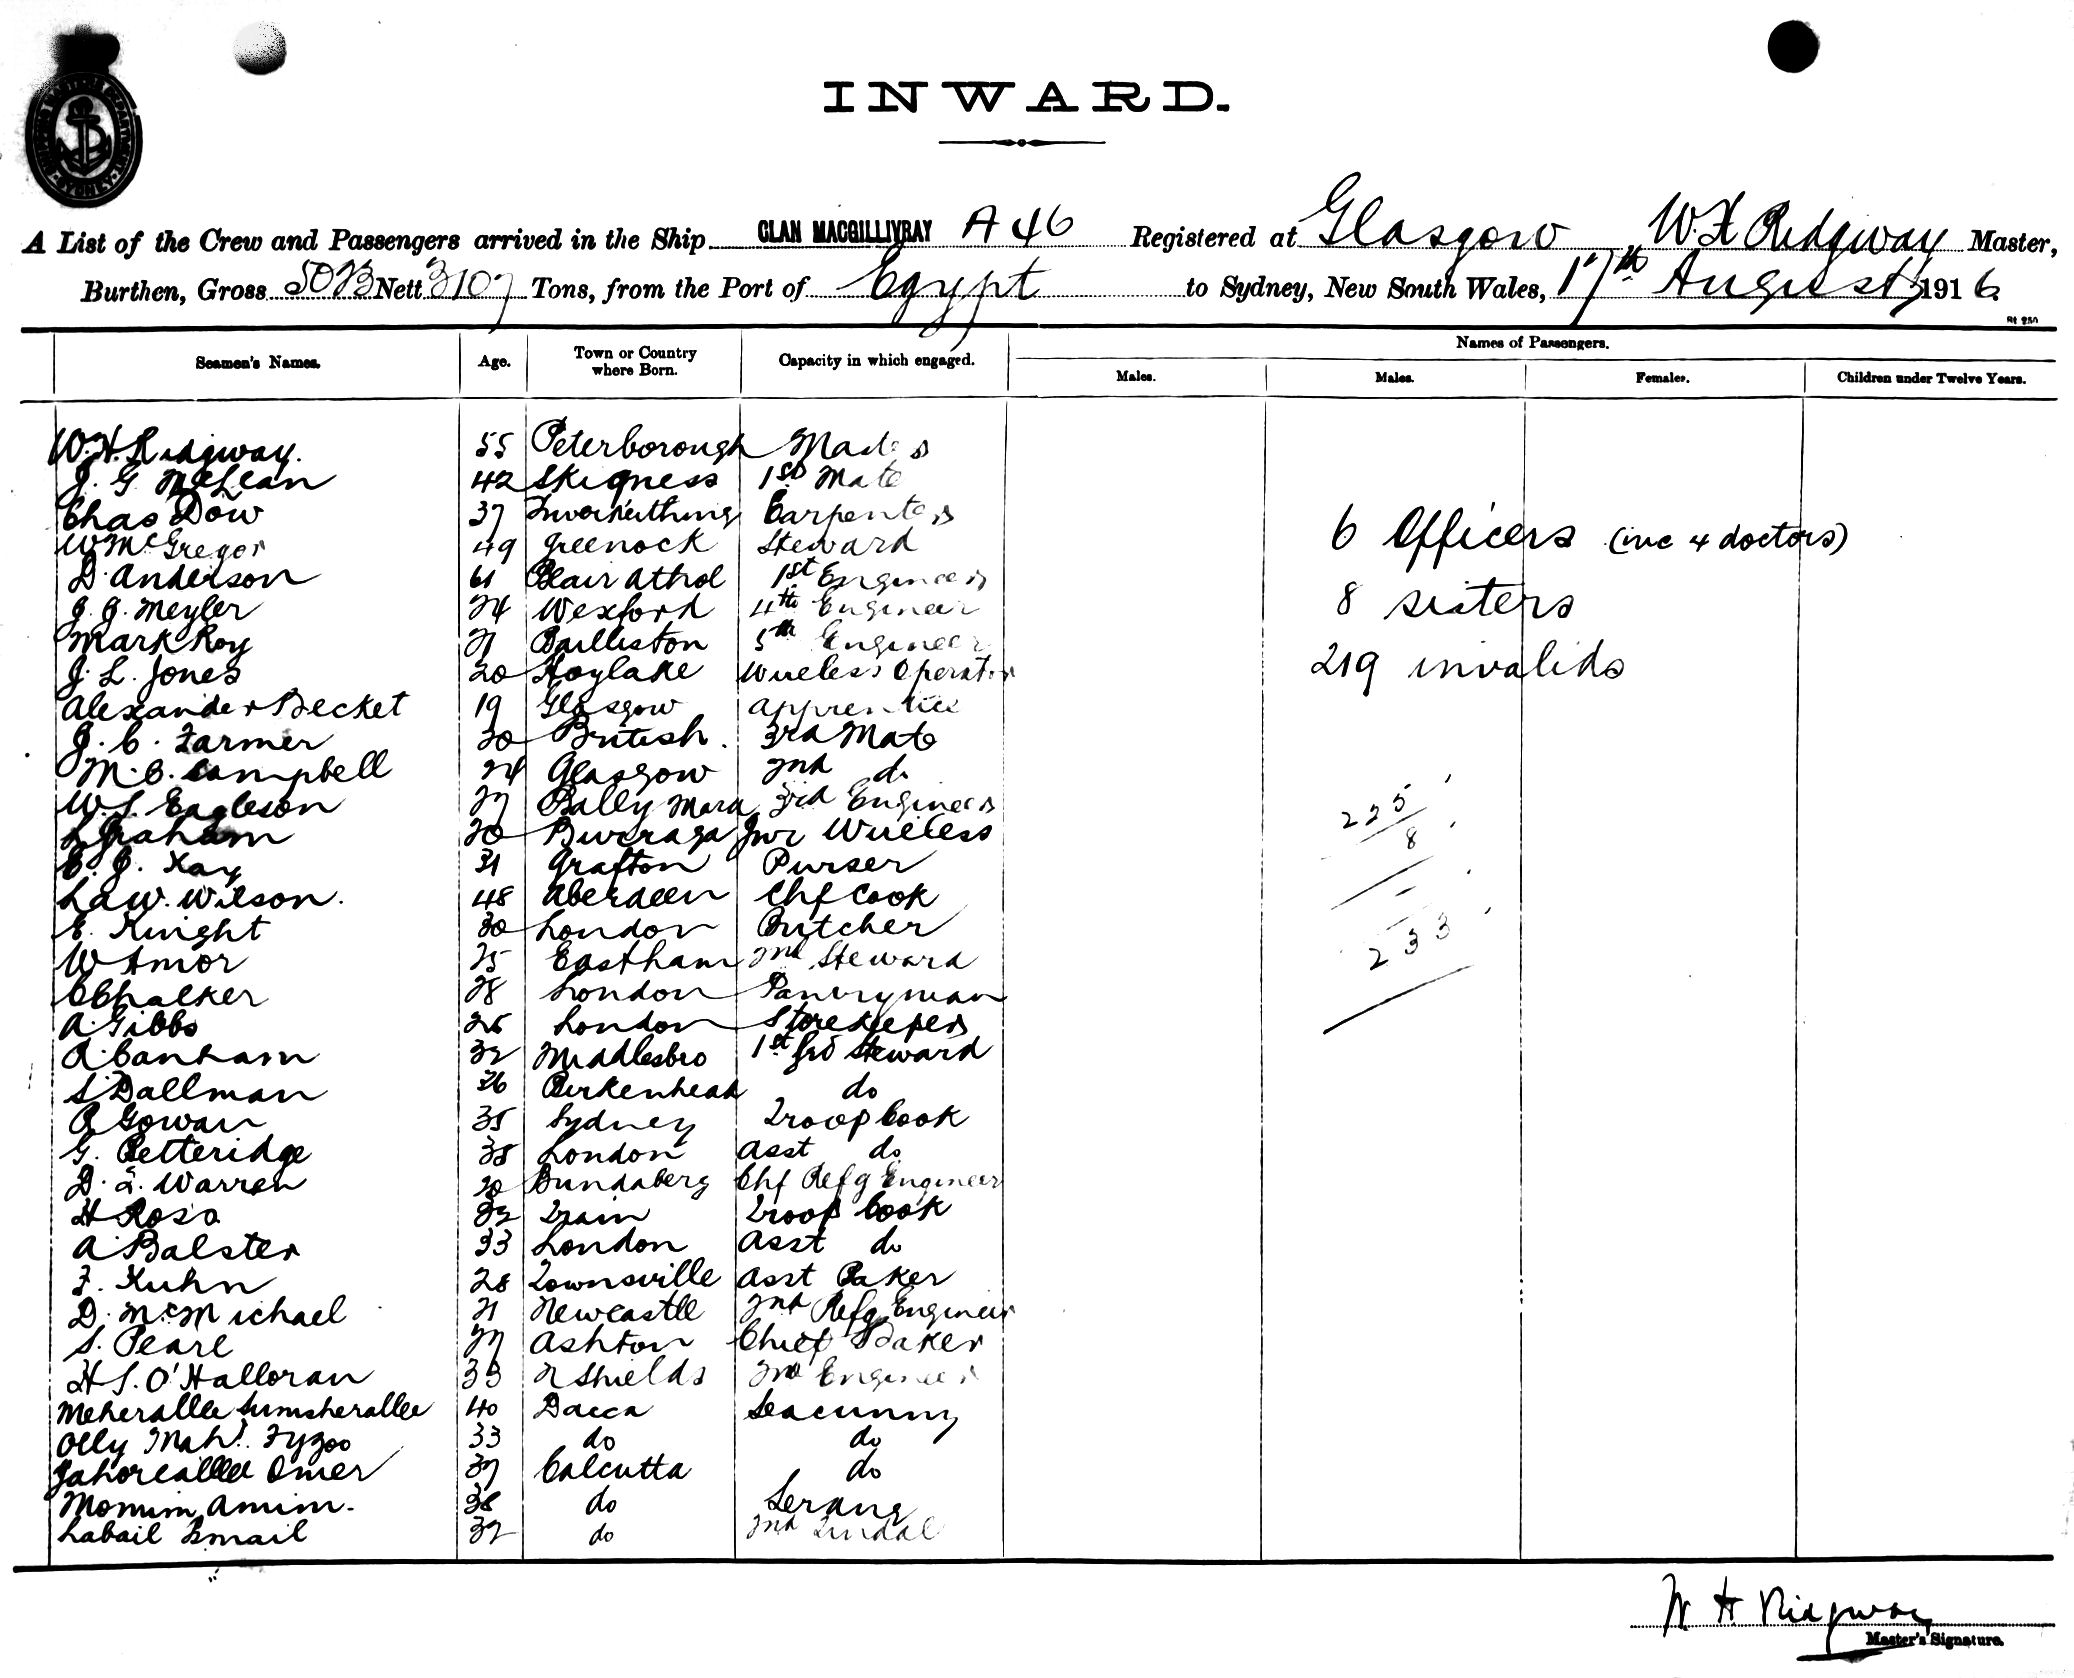 INWARD.
A List of the Crew and Passengers arrived in the Ship CLAN MACGILLIVRAY A46 Registered at Glasgow W.H Ridgway Master,
Burthen, Gross 5023 Nett 3107 Tons, from the Port of Egypt to Sydney, New South Wales, 17th August 1916.
Seamen's Names. Age. Town or Country where Born. Capacity in which engaged. Names of Passengers.
Males. Males. Females. Children under Twelve Years.
W.H. Ridgway. 55 Peterborough Master
J. G McLean 42 Skegness 1st Mate
Chas Dow 37 Inverkeithing Carpenter
W McGregor 49 Greenock Steward
D. Anderson 61 Blair Athol 1st Engineer
J. J. Meyler 24 Wexford 4th Engineer
Mark Roy 21 Bailliston 5th Engineer
J. L. Jones 20 Hoylake Wireless Operator
Alexander Becket 19 Glasgow Apprentice
J. C. Farmer 30 British. 3rd Mate
M. C. Campbell 24 Glasgow 2nd do
W. S. Eagleson 27 Bally Mara 3rd Engineer
Graham 20 Burraga Jnr Wireless
C. J. Kay 31 Grafton Purser
Law. Wilson. 48 Aberdeen Chf Cook
E. Knight 30 London Butcher
W Amor 25 Eastham 2nd Steward
C Chalker 28 London Pantryman
A. Gibbs 26 London Storekeeper
A. Canham 32 Middlesbro 1st Steward
S Dallman 26 Birkenhead do
R Gowan 35 Sydney Troop Cook
G. Petteridge 38 London Asst do
D. L. Warren 20 Bundaberg Chf Refg Engineer
H Ross 32 Train Troop Cook
A Balster 33 London Asst do
F. Kuhn 28 Townsville Asst Baker
D. McMichael 21 Newcastle 2nd Refg Engineer
S. Pearl 27 Ashton Chief Baker
H S. O'Halloran 33 N Shields 2nd Engineer
Meherallee Sumsherallee 40 Dacca Seacunny
Olly Mahd. Fyzoo 33 do do
Jahoreallee Omer 37 Calcutta do
Momim Amim. 38 do Serang
Labail Ismail 32 do 2nd Tindal
6 Officers (inc 4 doctors)
8 sisters
219 invalids
225
8
233
W H Ridgway
Master's Signature.